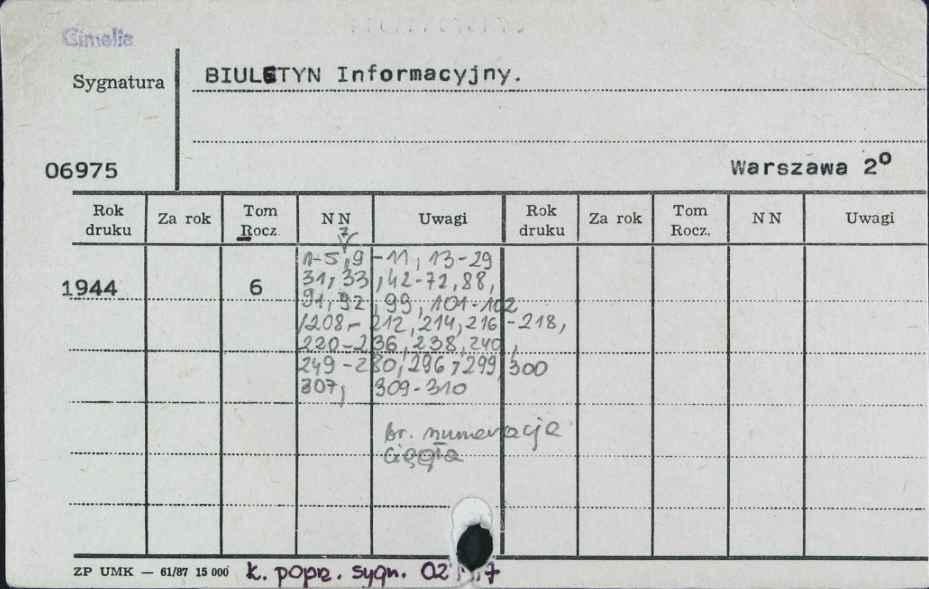 Cimelia
Sygnatura
BIULETYN Informacyjny.
06975
Warszawa 2°
Rok druku
Za rok
Tom Rocz.
NN
Uwagi
Rok druku
Za rok
Tom Rocz.
NN
Uwagi
7
1944
6
1-5,9-11, 13-29
31, 33, 42-72, 88,
91, 92, 99, 101-102
208-212, 214, 216-218,
220-236, 238, 240,
249-280, 296, 299, 300
307, 309-310
br. numeracja
ciągła
ZP UMK — 61/87 15 000
k. popr. sygn. 02 7